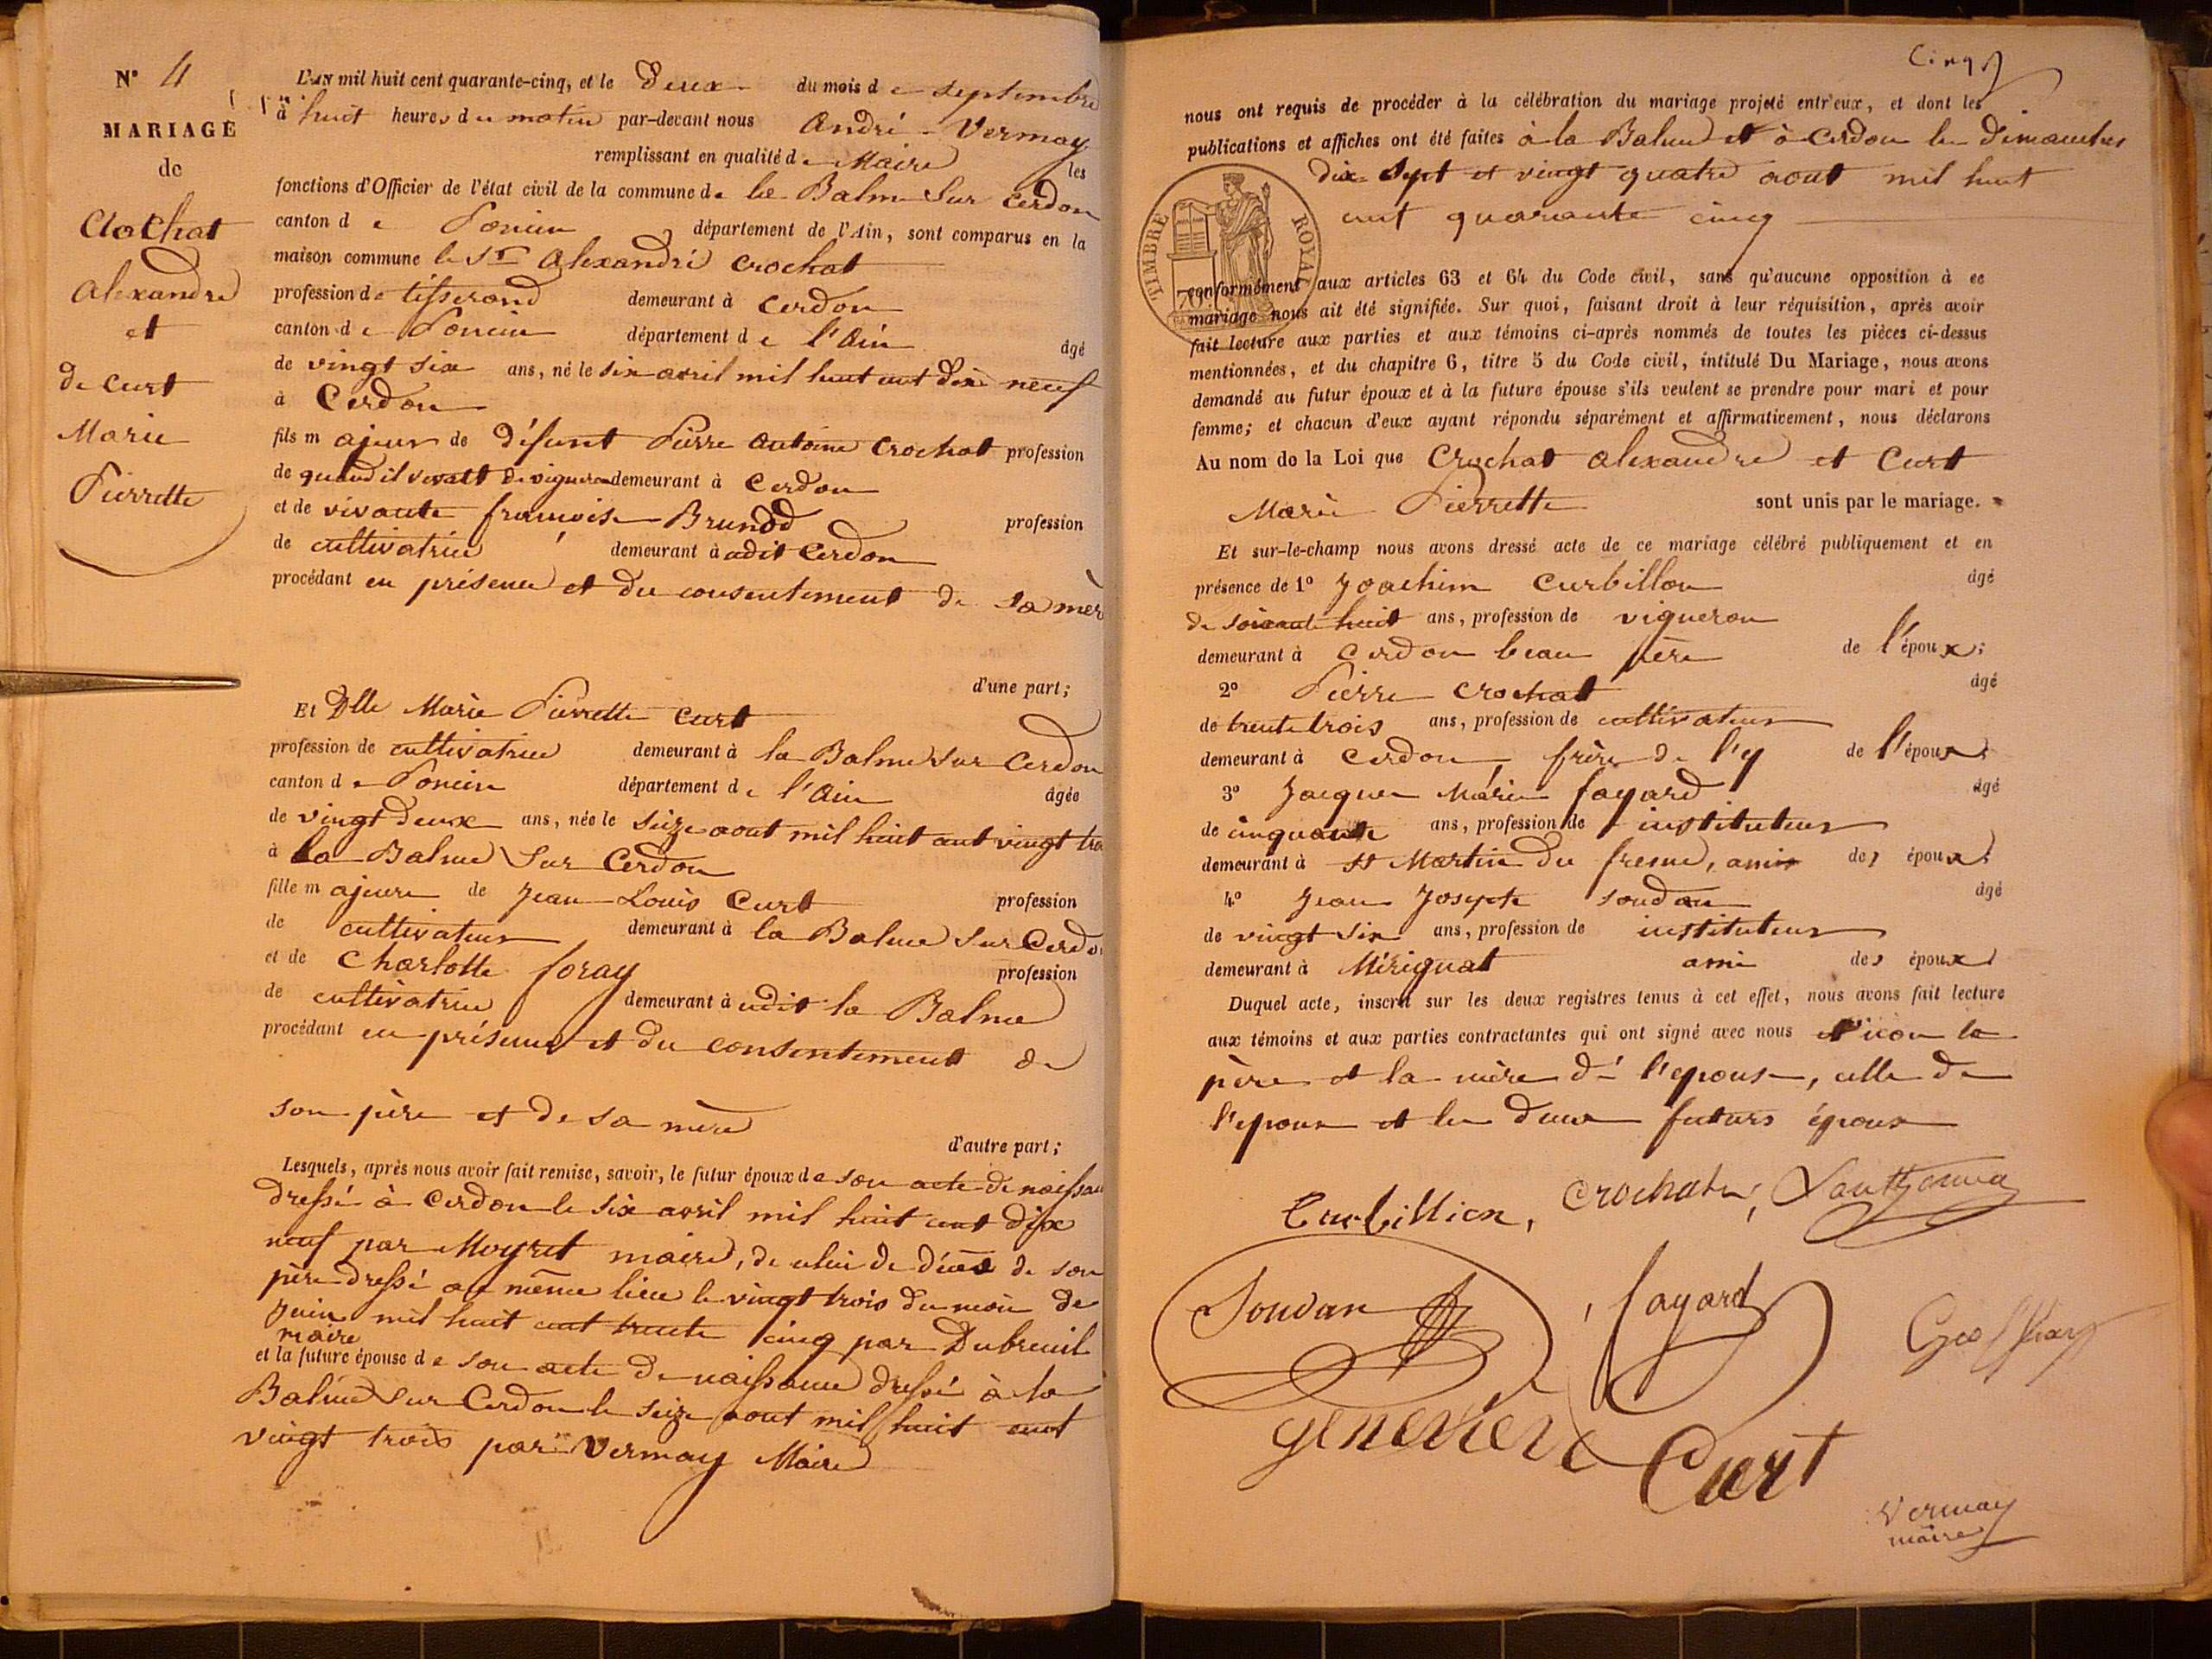 N° 4
MARIAGE
de
Crochat
Alexandre
et
de Curt
Marie
Pierrette
L'AN mil huit cent quarante-cinq, et le deux du mois de septembre
à huit heures du matin par-devant nous André Vermay
remplissant en qualité de Maire les
fonctions d'Officier de l'état civil de la commune de la Balme sur Cerdon
canton de Poncin département de l'Ain, sont comparus en la
maison commune le Sr Alexandre Crochat
profession de tisserand demeurant à Cerdon
canton de Poncin département de l'Ain âgé
de vingt six ans, né le six avril mil huit cent dix neuf
à Cerdon
fils majeur de défunt Pierre Antoine Crochat profession
de quand il vivait de vigneron demeurant à Cerdon
et de vivante françoise Brundd profession
de cultivatrice demeurant à udit Cerdon
procédant en présence et du consentement de sa mère
d'une part;
Et Dlle Marie Pierrette Curt
profession de cultivatrice demeurant à la Balme sur Cerdon
canton de Poncin département de l'Ain âgée
de vingt deux ans, née le seize aout mil huit cent vingt tro
à la Balme sur Cerdon
fille majeure de Jean Louis Curt profession
de cultivateur demeurant à la Balme sur Cerdon
et de Charlotte foray profession
de cultivatrice demeurant à udit la Balme
procédant en présence et du consentement de
son père et de sa mère
d'autre part;
Lesquels, après nous avoir fait remise, savoir, le futur époux de son acte de naissan
dressé à Cerdon le six avril mil huit cent dix
neuf par Moyret maire, de celui de décès de son
père dressé au même lieu le vingt trois du mois de
juin mil huit cent trente cinq par Dubreuil
maire
et la future épouse de son acte de naissance dressé à la
Balme sur Cerdon le seize aout mil huit cent
vingt trois par Vermay Maire
Cinq
nous ont requis de procéder à la célébration du mariage projeté entr'eux, et dont les
publications et affiches ont été faites à la Balme et à Cerdon les dimanches
dix sept et vingt quatre aout mil huit
cent quarante cinq
TIMBRE ROYAL
70
conformément aux articles 63 et 64 du Code civil, sans qu'aucune opposition à ce
mariage nous ait été signifiée. Sur quoi, faisant droit à leur réquisition, après avoir
fait lecture aux parties et aux témoins ci-après nommés de toutes les pièces ci-dessus
mentionnées, et du chapitre 6, titre 5 du Code civil, intitulé Du Mariage, nous avons
demandé au futur époux et à la future épouse s'ils veulent se prendre pour mari et pour
femme; et chacun d'eux ayant répondu séparément et affirmativement, nous déclarons
Au nom de la Loi que Crochat Alexandre et Curt
Marie Pierrette sont unis par le mariage.
Et sur-le-champ nous avons dressé acte de ce mariage célébré publiquement et en
présence de 1° Joachim Curbillon âgé
de soixante huit ans, profession de vigneron
demeurant à Cerdon beau père de l'époux;
2° Pierre Crochat âgé
de trente trois ans, profession de cultivateur
demeurant à Cerdon, frère de l'y de l'époux;
3° Jacques Marie fayard âgé
de cinquante ans, profession de instituteur
demeurant à St Martin du fresne, ami des époux;
4° Jean Joseph Soudan âgé
de vingt six ans, profession de instituteur
demeurant à Mérignat ami des époux
Duquel acte, inscrit sur les deux registres tenus à cet effet, nous avons fait lecture
aux témoins et aux parties contractantes qui ont signé avec nous et non le
père et la mère de l'epouse, celle de
l'epoux et les deux futurs époux
Curbillion, Crochat
Soudan fayard
genevier Curt
Vermay
maire